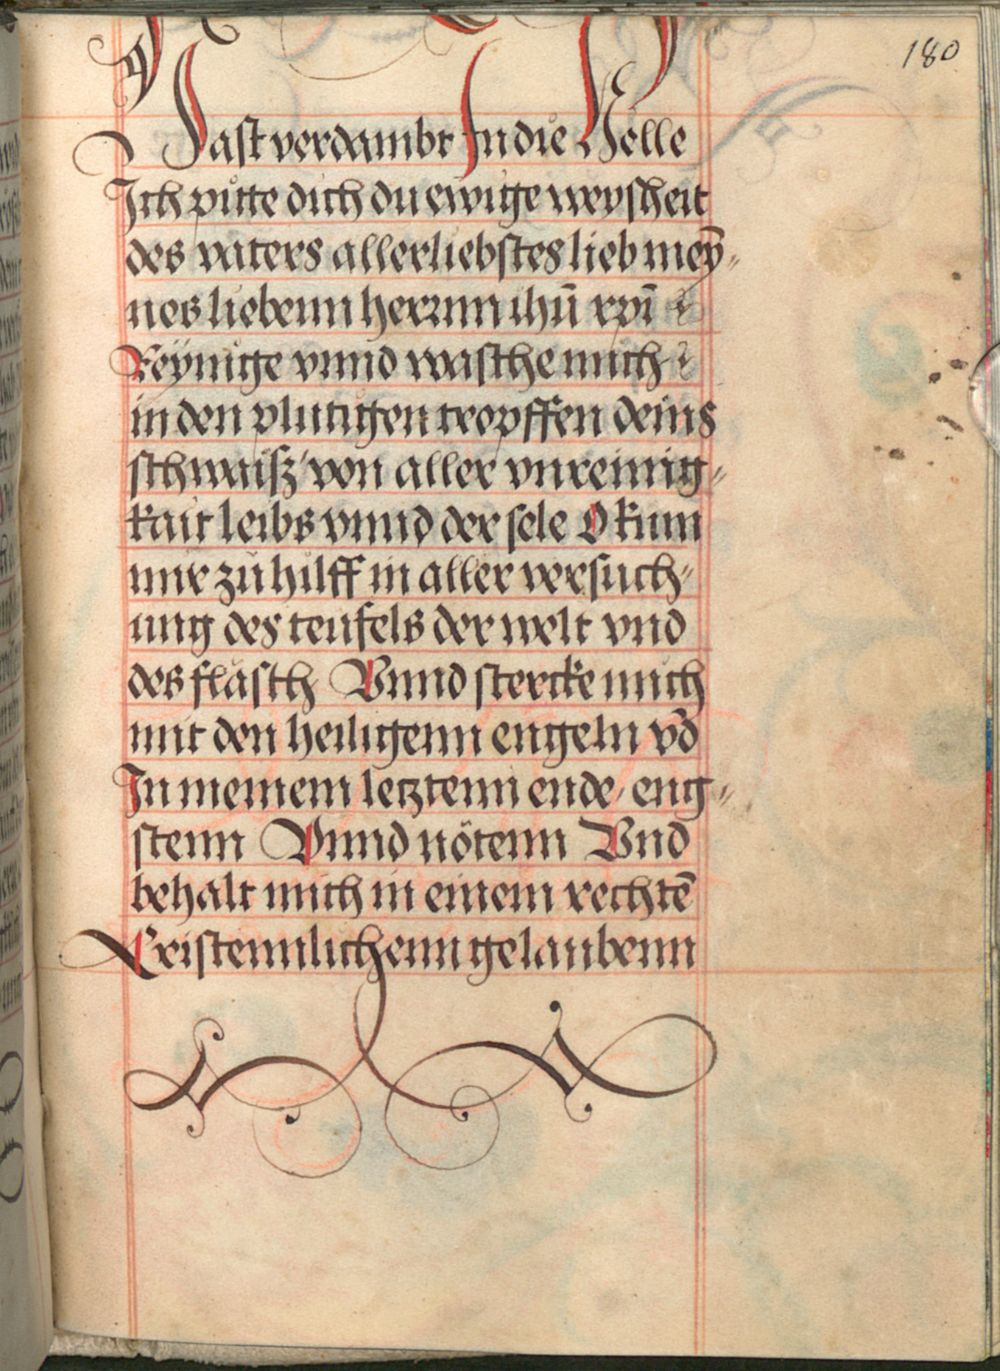 180
Hast verdambt In die Helle
Ich pitte dich du ewige weysheit
des vaters allerliebstes lieb meȳ„
nes liebenn herrnn ihū xpī
Reynige vnnd wasche mich
in den plutigen tropffen deins
schwaisz von aller vnreinig„
kait leibs vnnd der sele O kum
mir zu hilff in aller versuch„
ung des teufels der welt vnd
des flasch Vnnd stercke mich
mit den heiligenn engeln vn̄d
In meinem letztenn ende, eng„
stenn Vnnd nötenn Vnd
behalt mich in einem rechtē
Cristennlichenn gelaubenn